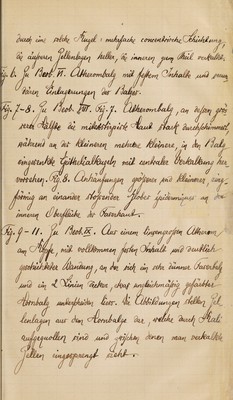 durch eine solche Kugel: mehrfache concentrische Schichtung,
die äusseren Zellenlagen heller, die inneren zum Theil verkalkt.
Fig. 6. Zu Beob. VI. Atherombalg mit festem Inhalte und
Einlagerungen des Balges.
Fig. 7–8. Zu Beob. VIII. Fig. 7. Atherombalg, an dessen
Hälfte die mikroskopische Haut stark durchschimmert,
während an der kleineren mehrere kleinere, in den Balg
eingesenkte Epithelialkugeln mit centraler Verkalkung her-
vorsehen. Fig. 8. Anhäufungen grösserer und kleinerer,
förmig an einander stossender Globes épidermiques an der
inneren Oberfläche der Faserhaut.
Fig. 9–11. Zu Beob. IX. Aus einem Atherom
am Kopfe, mit vollkommen festem Inhalt und deutlich
geschichteter Wandung, an der sich ein sehr dünner Faserbalg
und ein 2 Linien dicker, etwas ungleichmässig gefärbter
Hornbalg unterscheiden liess. Die Abbildungen stellen Zel-
lenlagen aus dem Hornbalge dar, welche durch Kali
aufgequollen sind und zwischen denen man verkalkte
Zellen eingesprengt sieht.